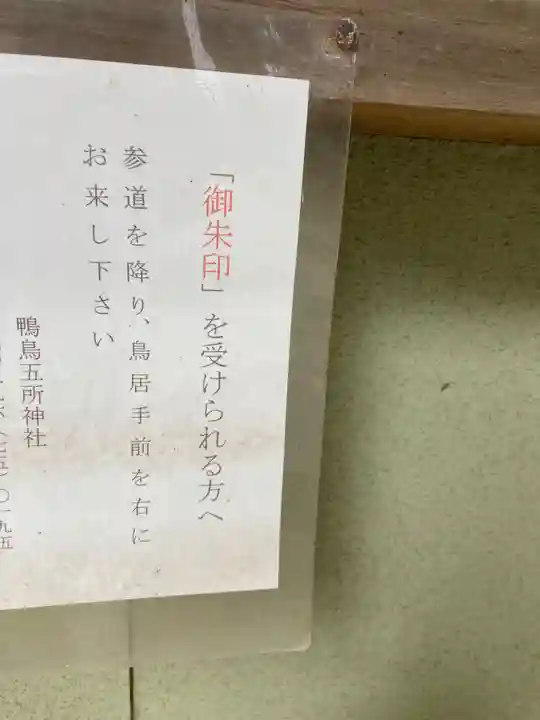 「御朱印」を受けられる方へ
参道を降り、鳥居手前を右に
お来し下さい
鴨鳥五所神社
（七五）〇一九五